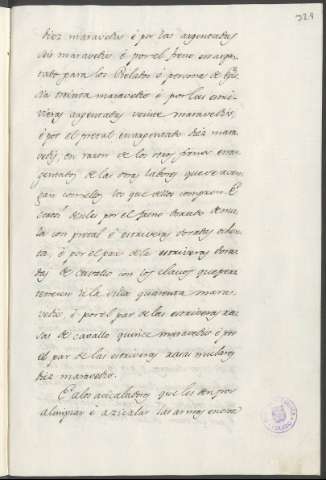 324
diez maravedis é por las argentadas
seis maravedis é por el freno enargen
tado para los Prelados é personas de Igle
sia treinta maravedis é por las estri-
veras argentadas veinte maravedis,
é por el pretal enargentado diez mara
vedis, en razon de los otros frenos enar
gentados de las otras labores que se aven
gan con ellos, los que dellos compraren. E
por el freno dorado de mu
la con pretal é estriveras doradas ochen
ta, é por el par de las estriveras dora
das de cavallo con los clavos que per
tenecen á la silla quarenta mara
vedis é por el par de las estriveras ra
sas de cavallo quince maravedis é por
el par de las estriveras rasas mulares
diez maravedis.
E á los acicaladores que les den por
alimpiar é acicalar las armas en esta